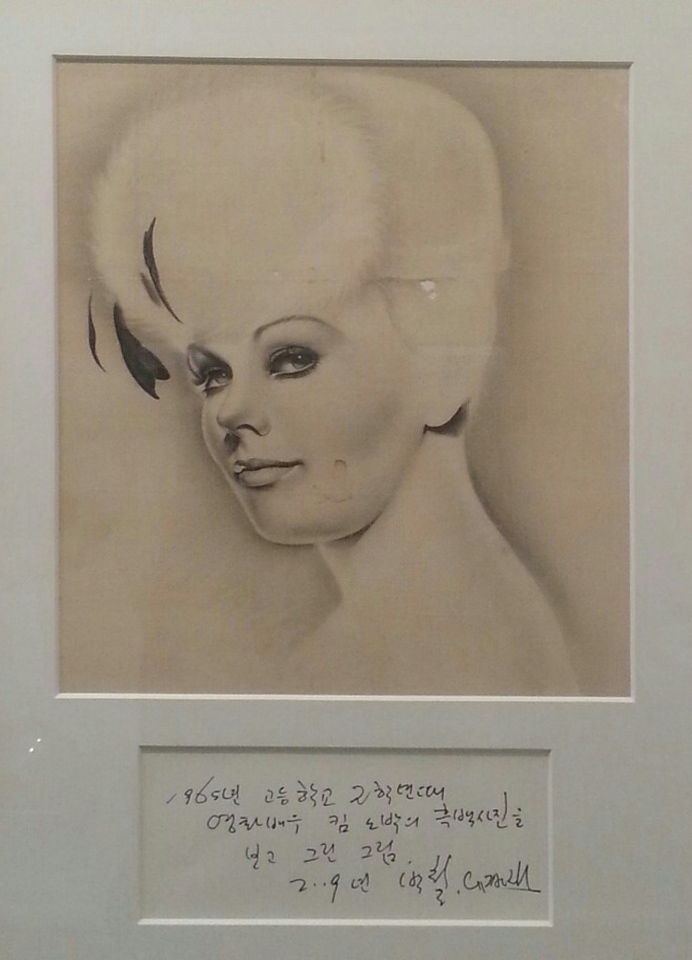 1965년 고등학교 2학년때
영화배우 킴 노박의 흑백사진을
보고 그린 그림.
2009년